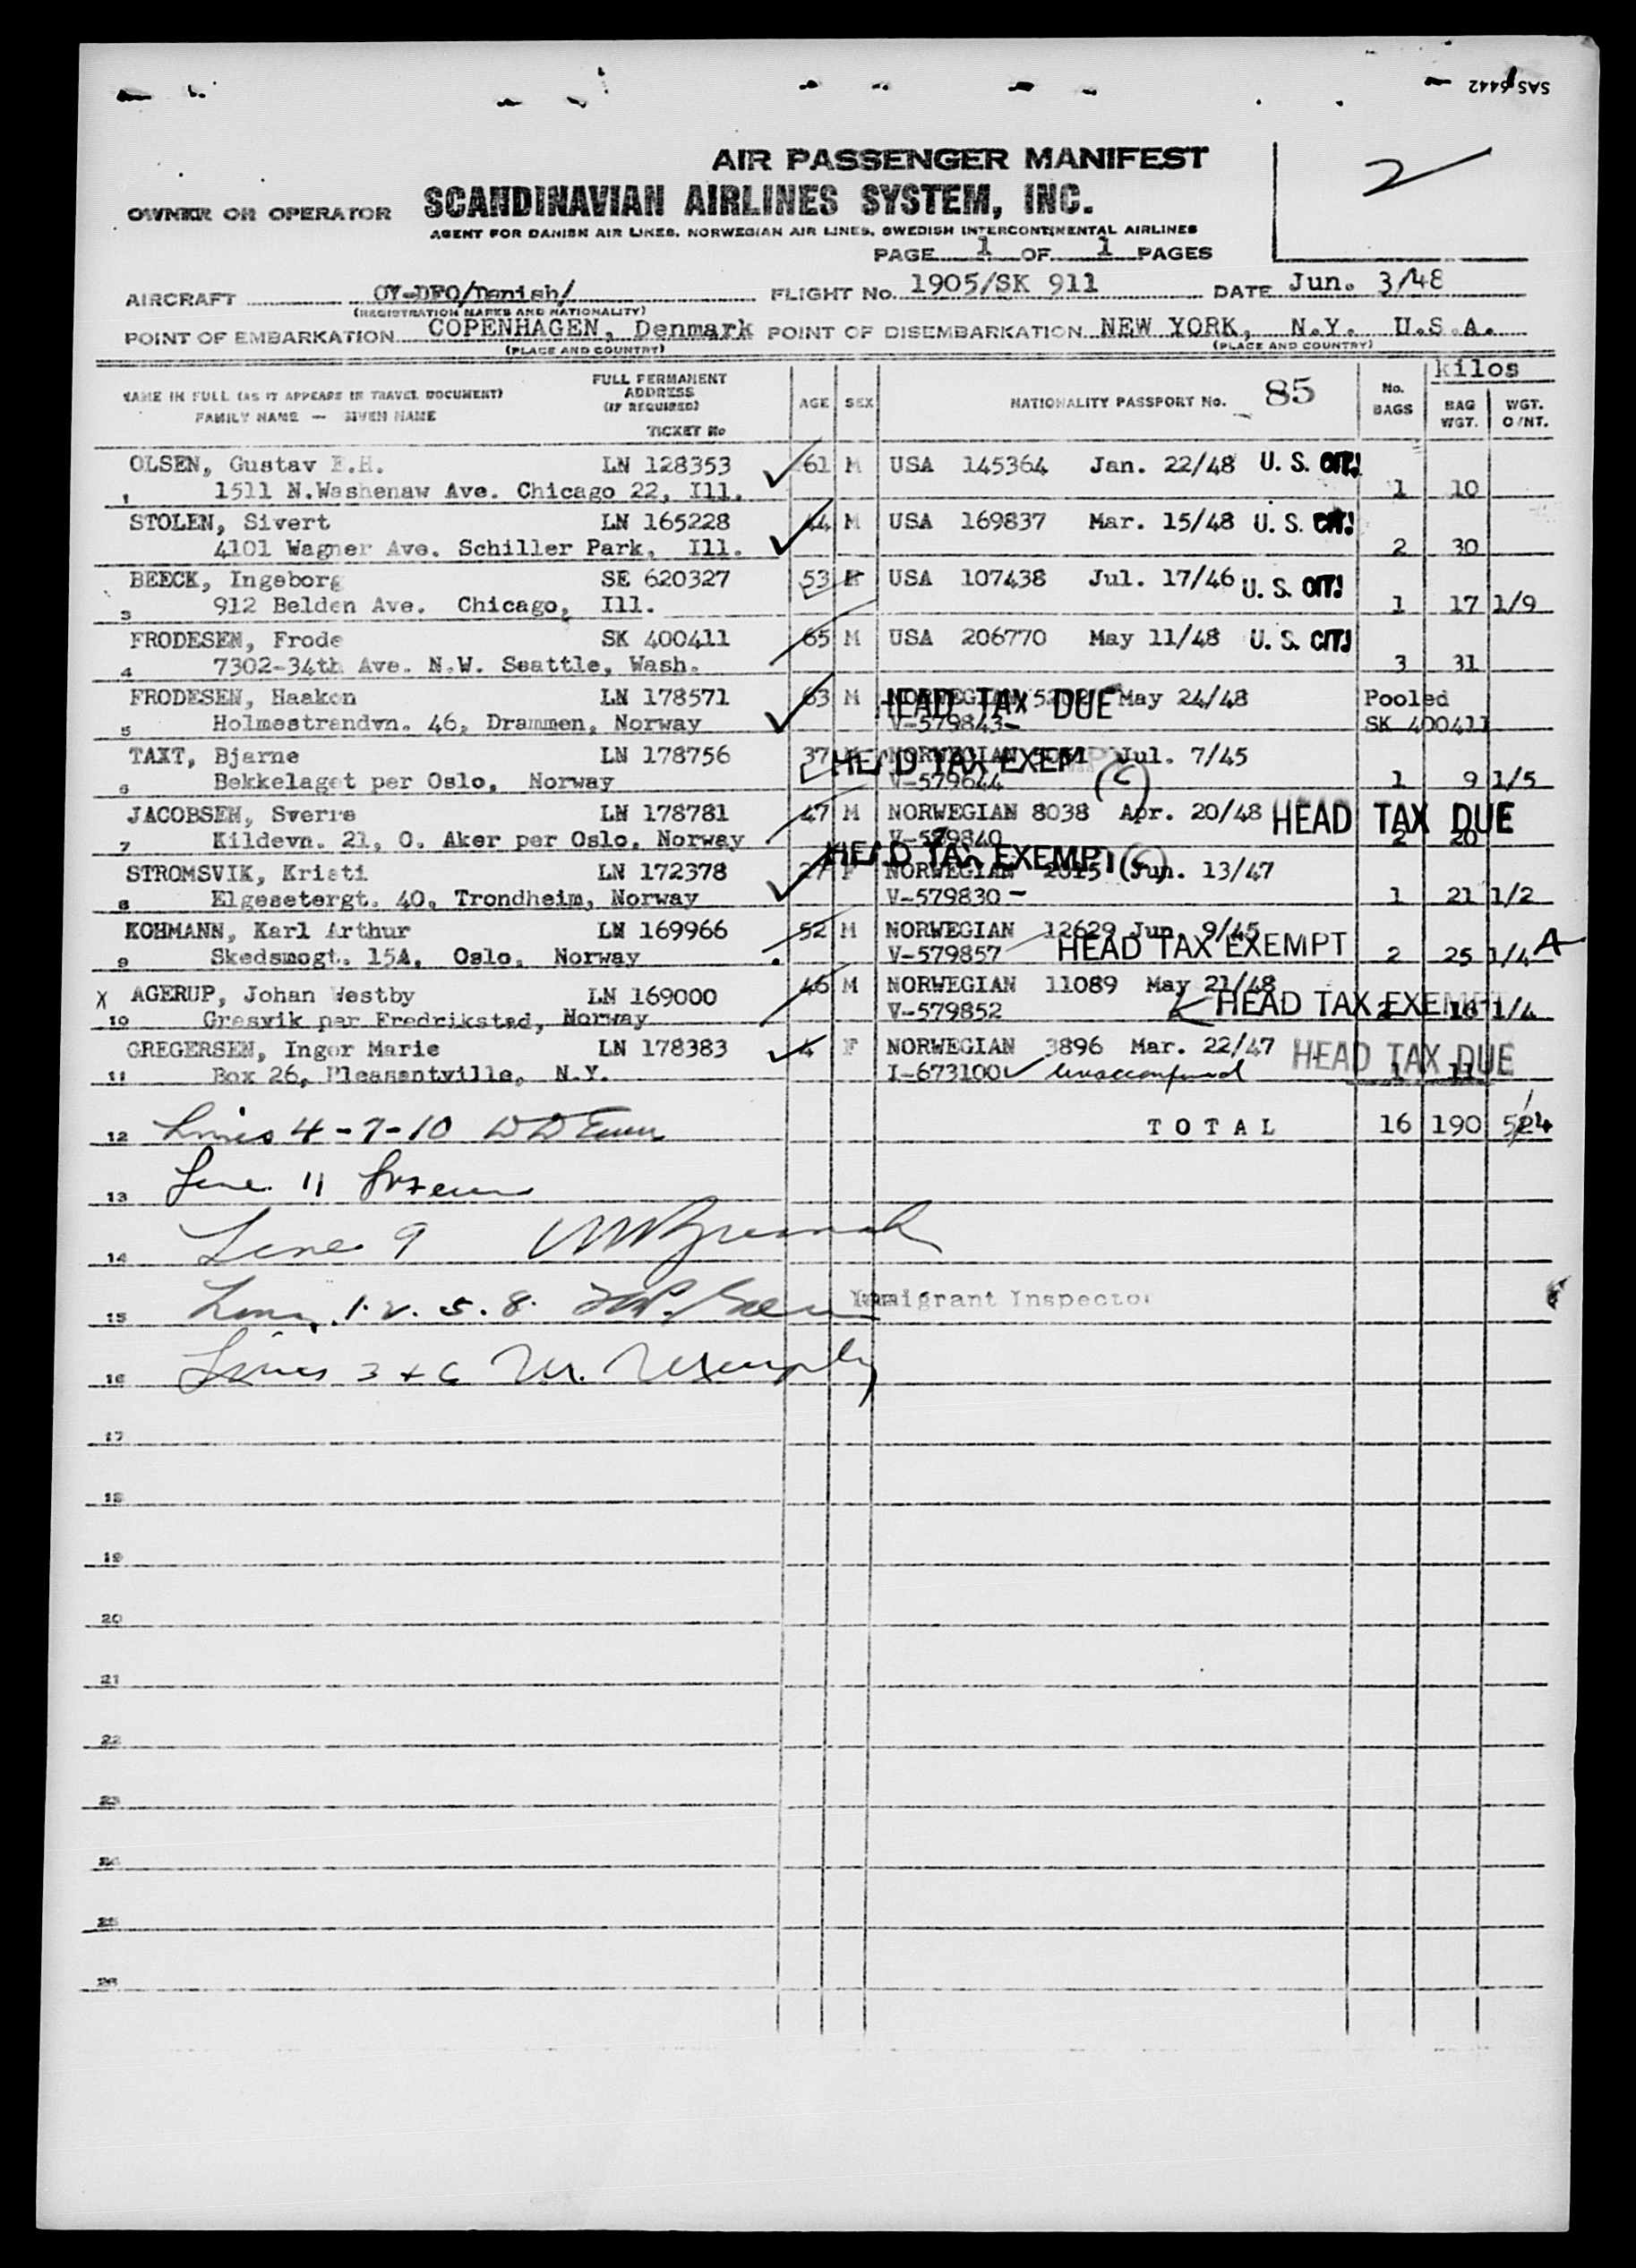 SAS 6442
AIR PASSENGER MANIFEST
2
OWNER OR OPERATOR SCANDINAVIAN AIRLINES SYSTEM, INC.
AGENT FOR DANISH AIR LINES, NORWEGIAN AIR LINES, SWEDISH INTERCONTINENTAL AIRLINES
PAGE 1 OF 1 PAGES
AIRCRAFT OY-DFO/Danish/ FLIGHT No. 1905/SK 911 DATE Jun. 3/48
(REGISTRATION MARKS AND NATIONALITY)
POINT OF EMBARKATION COPENHAGEN, Denmark POINT OF DISEMBARKATION NEW YORK, N.Y. U.S.A.
(PLACE AND COUNTRY) (PLACE AND COUNTRY)
kilos
NAME IN FULL (AS IT APPEARS IN TRAVEL DOCUMENT) FULL PERMANENT ADDRESS (IF REQUIRED) AGE SEX NATIONALITY PASSPORT No. 85 No. BAGS BAG WGT. WGT. O/NT.
FAMILY NAME — GIVEN NAME TICKET No
OLSEN, Gustav E.H. LN 128353 61 M USA 145364 Jan. 22/48 U. S. CIT!
1 1511 N.Washenaw Ave. Chicago 22, Ill. 1 10
STOLEN, Sivert LN 165228 44 M USA 169837 Mar. 15/48 U. S. CIT!
4101 Wagner Ave. Schiller Park, Ill. 2 30
BEECK, Ingeborg SE 620327 53 USA 107438 Jul. 17/46 U. S. CIT!
3 912 Belden Ave. Chicago, Ill. 1 17 1/9
FRODESEN, Frode SK 400411 65 M USA 206770 May 11/48 U. S. CIT!
4 7302-34th Ave. N.W. Seattle, Wash. 3 31
FRODESEN, Haakon LN 178571 63 M NORWEGIAN HEAD TAX DUE May 24/48 Pooled
5 Holmestrandvn. 46, Drammen, Norway V-579843 SK 400411
TAXT, Bjarne LN 178756 37 NORWEGIAN HEAD TAX EXEMP Jul. 7/45
6 Bekkelaget per Oslo, Norway V-579644 (C) 1 9 1/5
JACOBSEN, Sverre LN 178781 47 M NORWEGIAN 8038 Apr. 20/48 HEAD TAX DUE
7 Kildevn. 21, O. Aker per Oslo, Norway V-579840 2 20
STROMSVIK, Kristi LN 172378 27 F NORWEGIAN HEAD TAX EXEMPT (C) Jun. 13/47
8 Elgesetergt. 40, Trondheim, Norway V-579830 1 21 1/2
KOHMANN, Karl Arthur LN 169966 52 M NORWEGIAN 12629 Jun. 9/45
9 Skedsmogt. 15A, Oslo, Norway V-579857 HEAD TAX EXEMPT 2 25 1/4 A
X AGERUP, Johan Westby LN 169000 46 M NORWEGIAN 11089 May 21/48
10 Gresvik per Fredrikstad, Norway V-579852 HEAD TAX EXEMPT 2 16 1/4
GREGERSEN, Inger Marie LN 178383 4 F NORWEGIAN 3896 Mar. 22/47 HEAD TAX DUE
11 Box 26, Pleasantville, N.Y. I-673100 1 11
12 Lines 4-7-10 TOTAL 16 190
13 Line 11
14 Line 9
15 1. 2. 5. 8. Immigrant Inspector
16 Lines 3 + 6
17
18
19
20
21
22
23
24
25
26